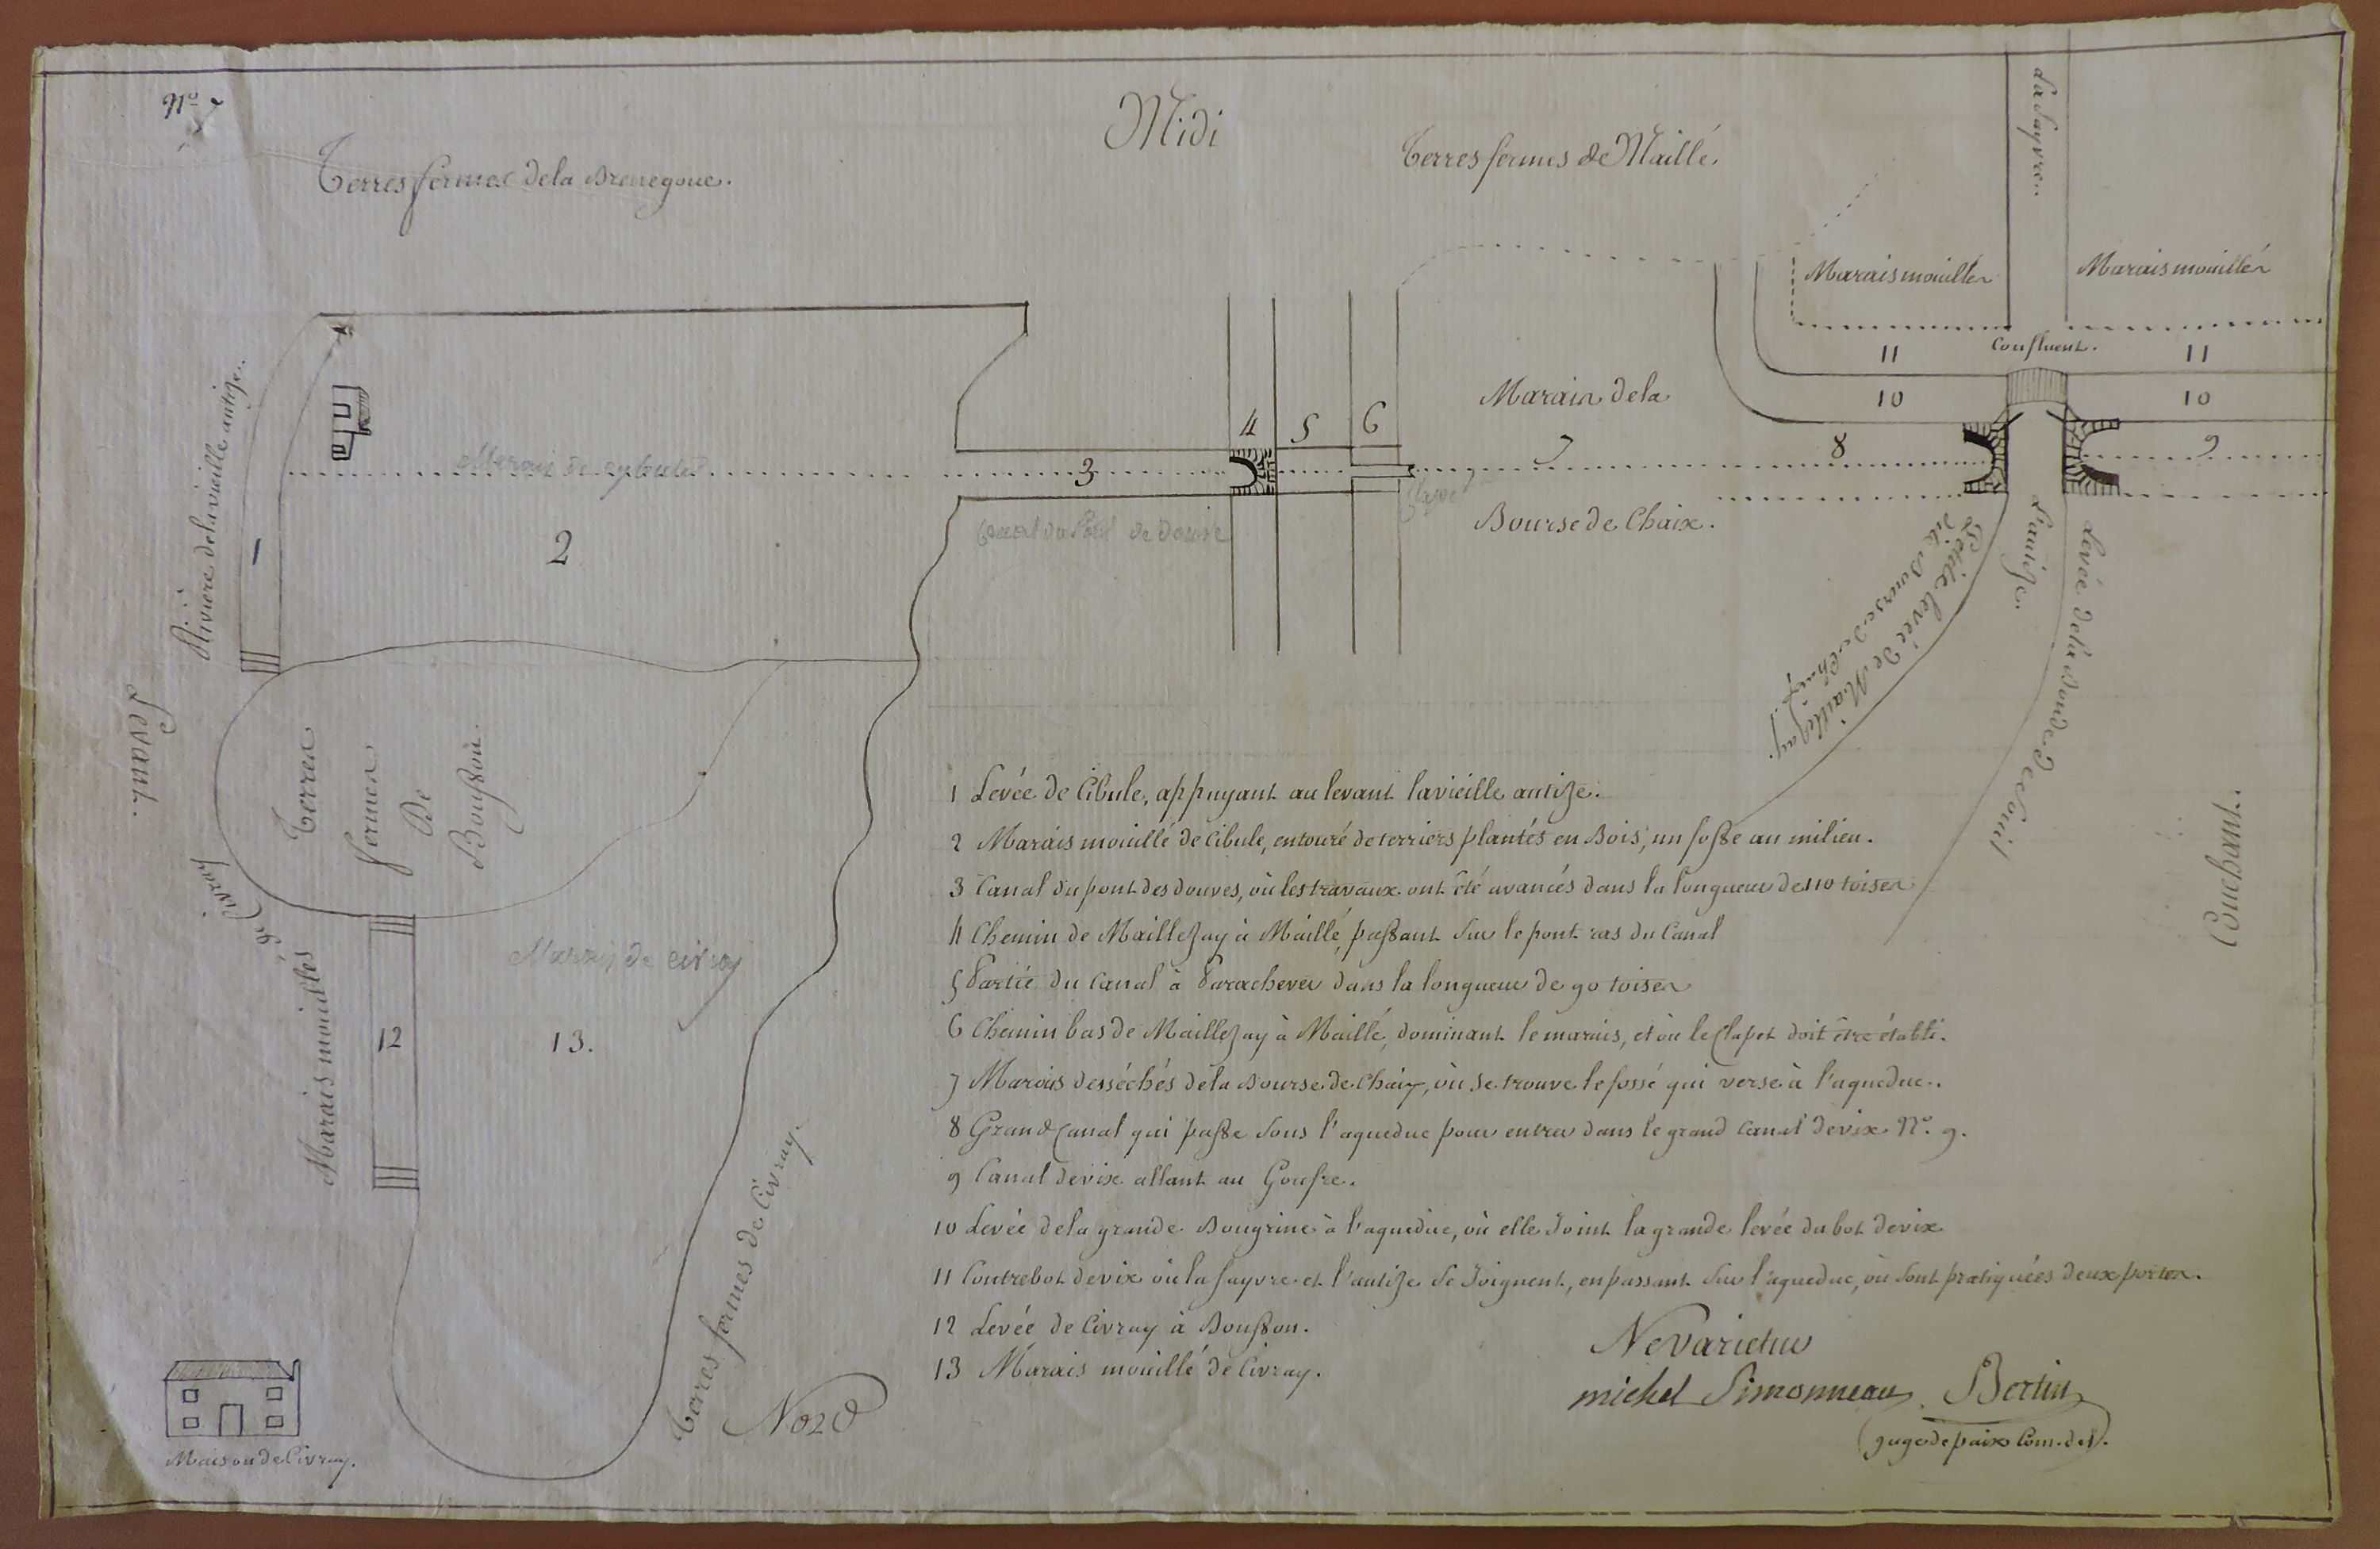 Nº 7
Midi
Terres fermes dela Brenegoue.
Terres fermes de Maillé.
La Sayvre.
Marais mouillés
Marais mouillés
Confluent.
11
11
10
10
Riviere delavieille autize.
1
Marais de cybule
2
3
4
5
6
Canal du Pont de Douve
Clapet
Marais dela
7
Bourse de Chaix.
8
9
L'autize.
Petite levée de Maillezay
dit Bourse de Chaix.
Levée dela Bonde de Souil
Levant.
Couchant.
Terres
fermes
De
Bousson.
de Civray
Marais mouillés
12
Marais de civray
13.
Terres fermes de Civray.
Nord
Maison de Civray.
1 Levée de Cibule, appuyant au levant lavieille autize.
2 Marais mouillé de Cibule, entouré de terriers plantés en Bois, un fosse au milieu.
3 Canal du pont des douves, où les travaux ont été avancés dans la longueur de 110 toises
4 Chemin de Maillezay à Maillé, passant sur le pont ras du Canal
5 Partie du Canal à Parachever dans la longueur de 90 toises
6 Chemin bas de Maillezay à Maillé, dominant le marais, et où le Clapet doit être établi.
7 Marais desséchés dela Bourse de Chaix, où se trouve le fossé qui verse à l'aqueduc.
8 Grand Canal qui passe sous l'aqueduc pour entrer dans le grand canal devix Nº. 9.
9 Canal devix allant au Goufre.
10 Levée dela grande Bougrine à l'aqueduc, où elle Joint la grande levée du bot devix
11 Contrebot devix où la sayvre et l'autize se Joignent, en passant sur l'aqueduc, où sont pratiquées deux portes.
12 Levée de Civray à Bousson.
13 Marais mouillé de Civray.
Nevarietur
michel Simonneau Bertin
Juge de paix Com. del.